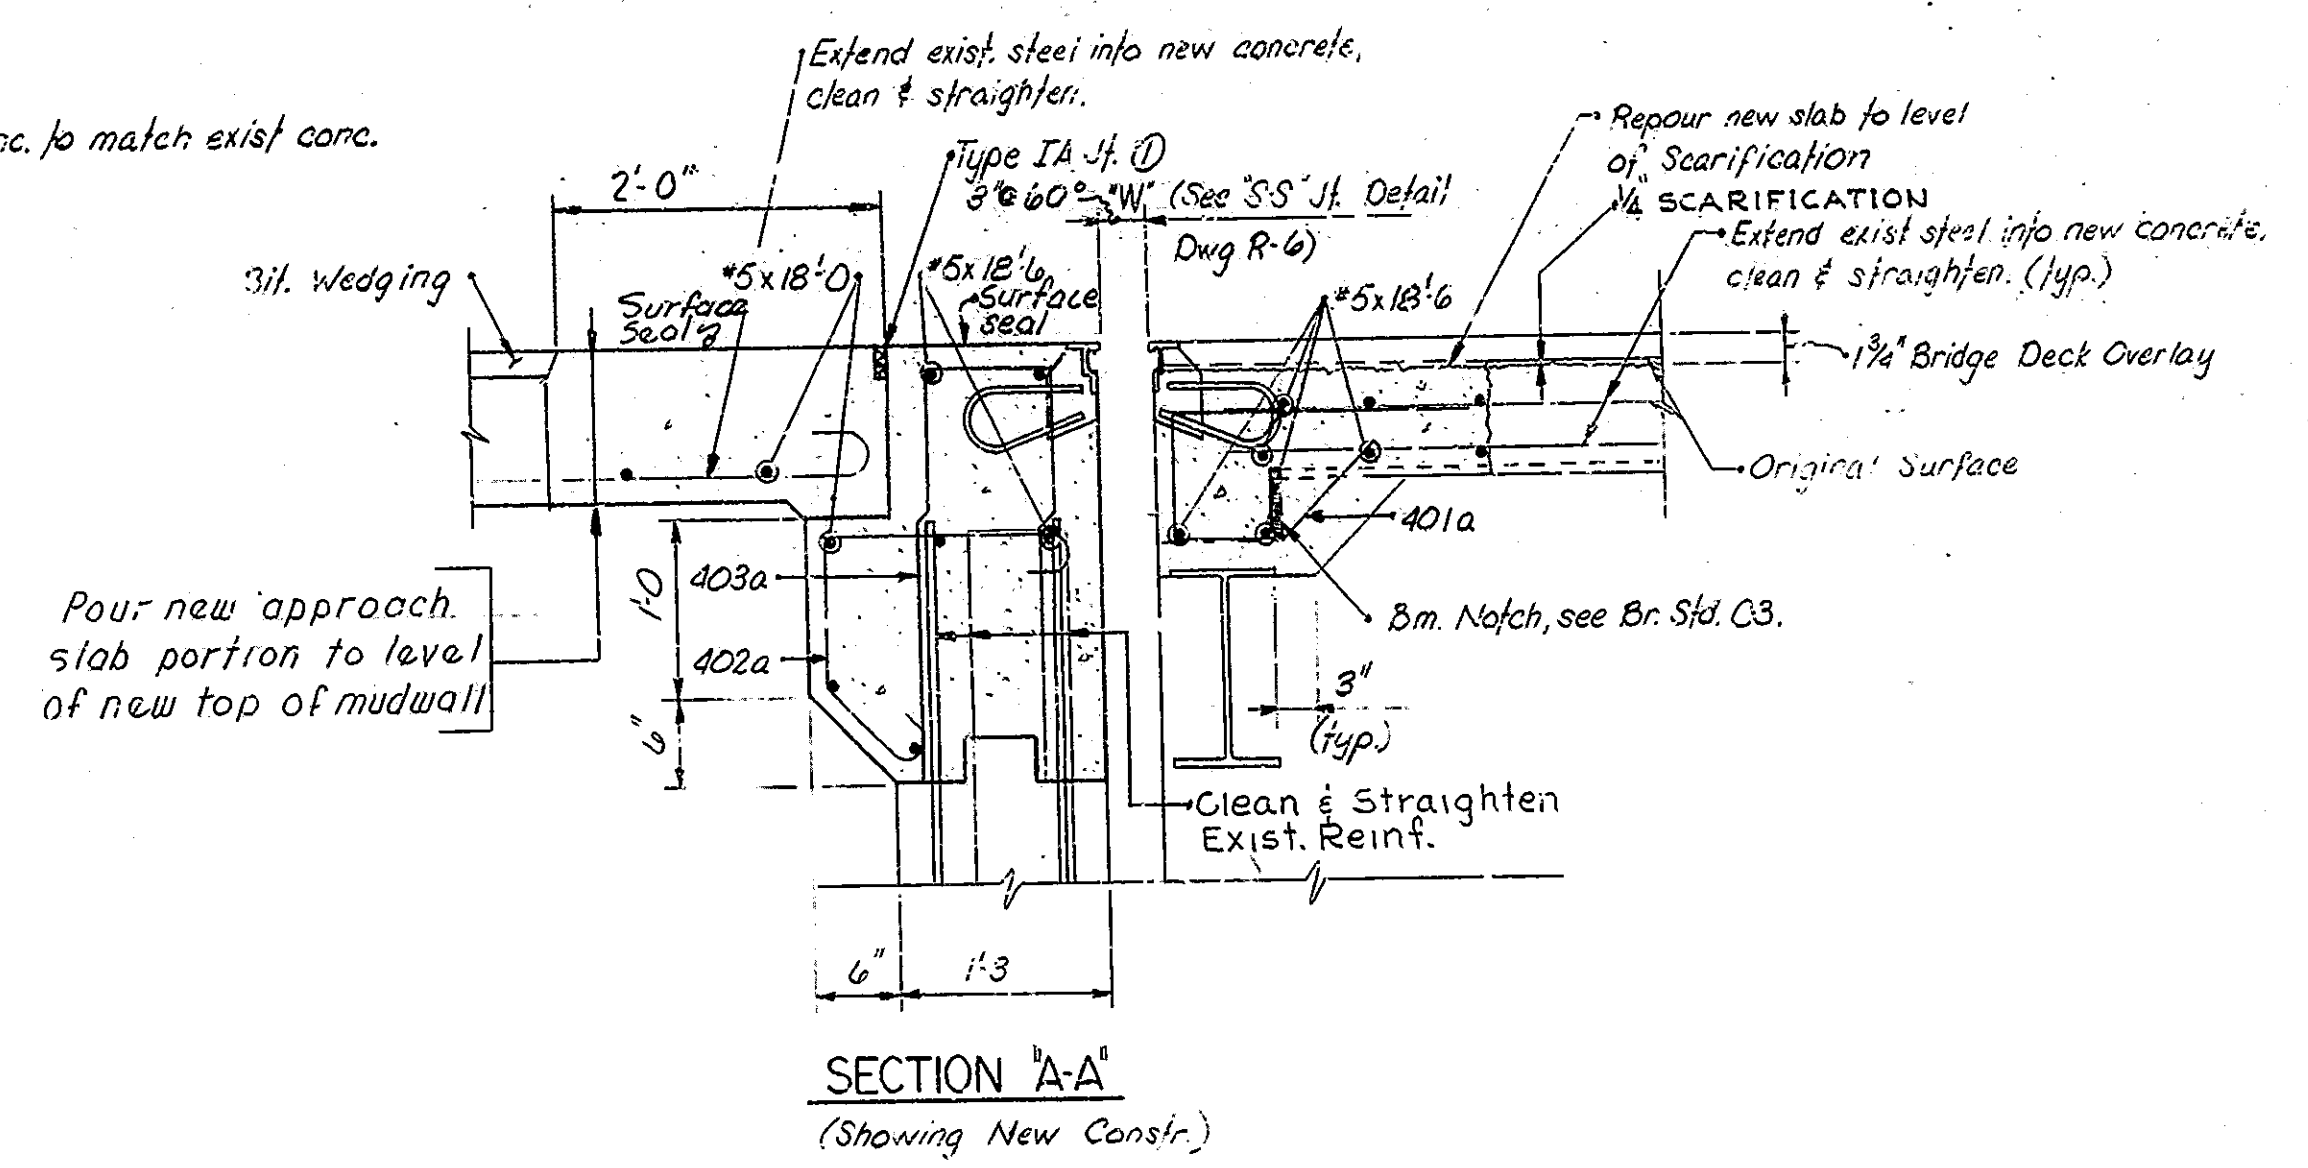 Extend exist. steel into new concrete,
clean & straighten.
to match exist conc.
2'-0"
Type IA Jt. ①
3" @ 60° "W" (See "S-S" Jt. Detail
Dwg R-6)
Repour new slab to level
of Scarification
1/4" SCARIFICATION
Extend exist steel into new concrete,
clean & straighten. (typ.)
Bit. Wedging
Surface
Seal
#5x18'-0
#5x18'-6
Surface
seal
#5x18'-6
1 3/4" Bridge Deck Overlay
Original Surface
401a
Pour new approach
slab portion to level
of new top of mudwall
1'-0
403a
402a
6"
Bm. Notch, see Br. Std. C3.
3"
(typ.)
Clean & Straighten
Exist. Reinf.
6"
1'-3
SECTION "A-A"
(Showing New Constr.)